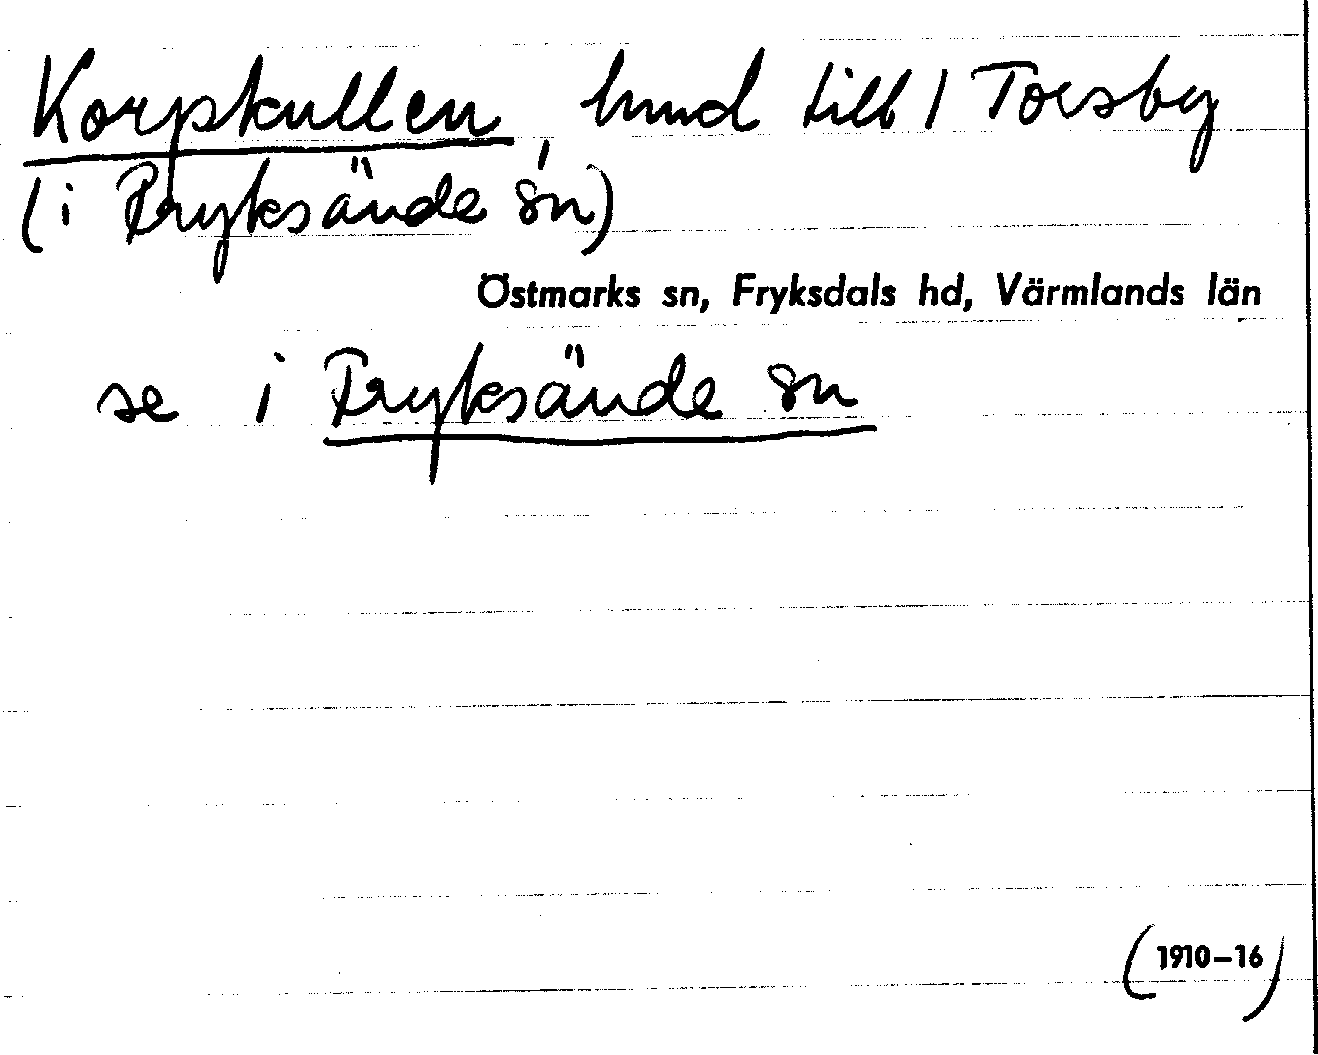 Korpkullen, hmd till 1 Torsby
(i Fryksände sn)
Östmarks sn, Fryksdals hd, Värmlands län
se i Fryksände sn
(1910–16)